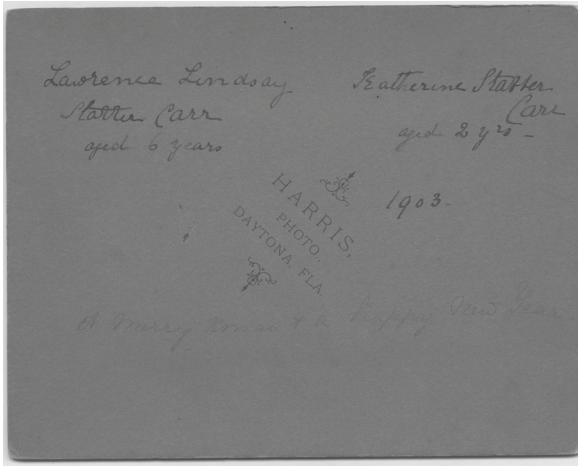 Lawrence Lindsay
Statter Carr
aged 6 years
Katherine Statter
Carr
aged 2 yrs -
1903 -
HARRIS,
PHOTO.,
DAYTONA, FLA.
A Merry Xmas & a Happy New Year.